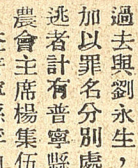 過去與劉永生
加以罪名分別處
逃者計有普寧縣
農會主席楊集伍